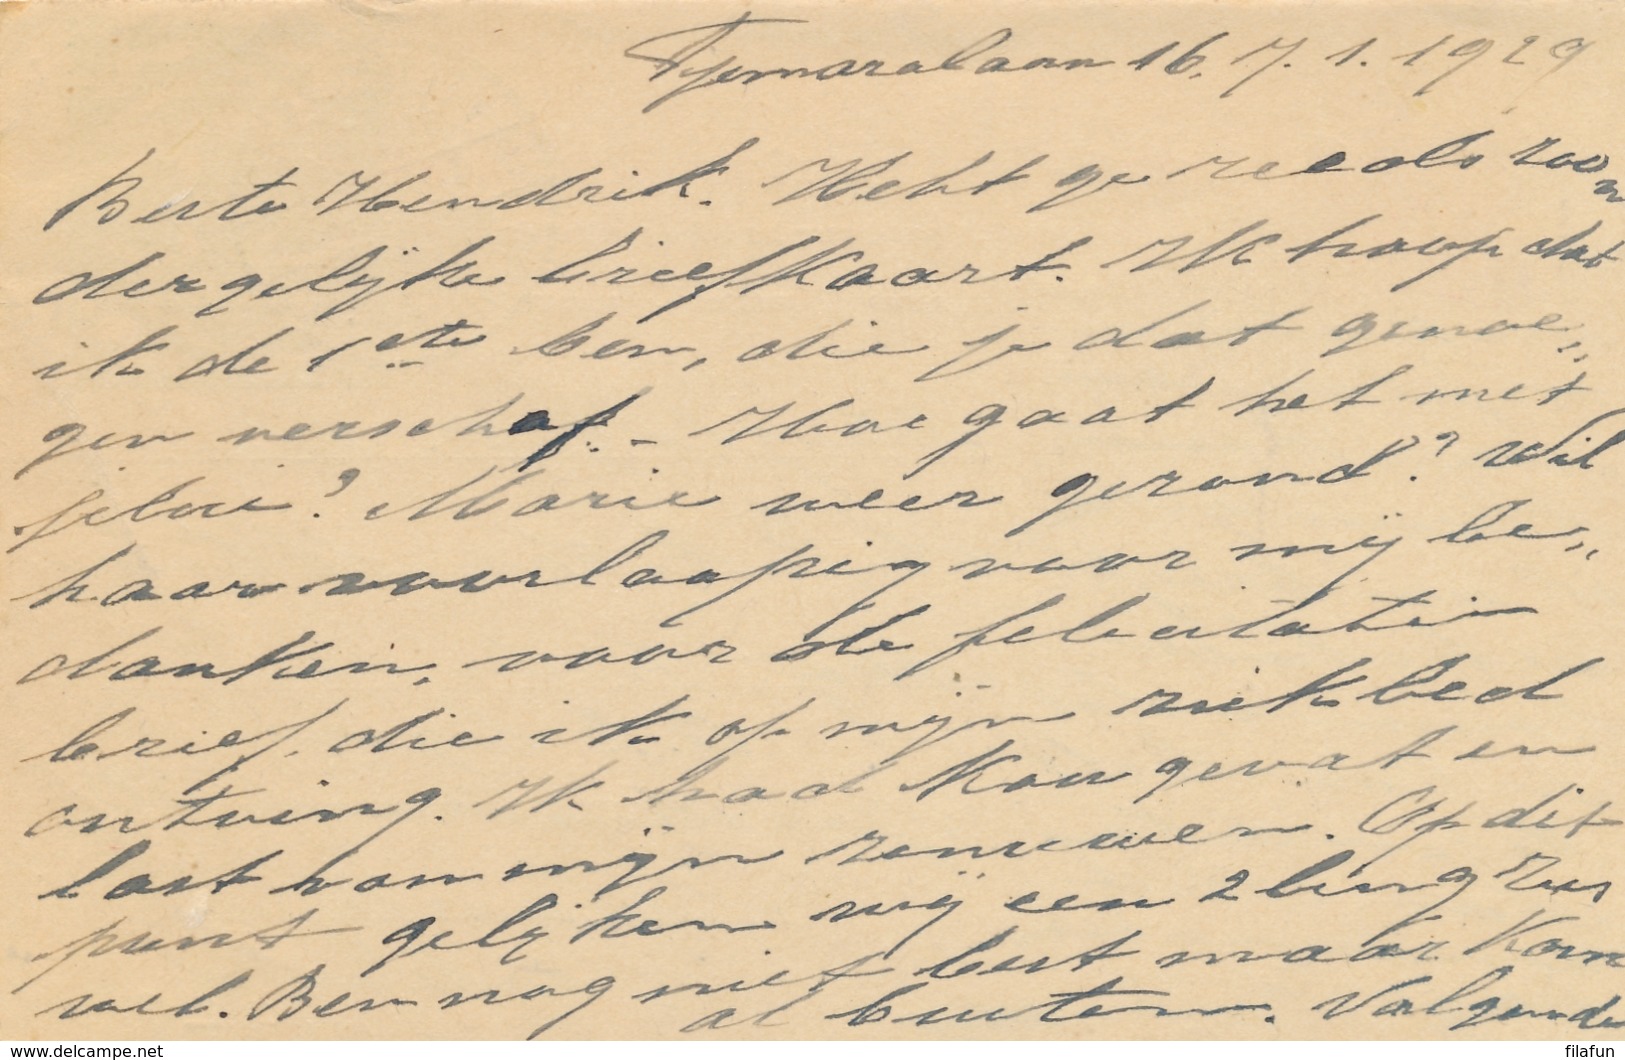 Tjemaralaan 16. 7.1.1929
Beste Hendrik. Hebt ge reeds zoon
dergelijke briefkaart. Ik hoop dat
ik de 1ste ben, die je dat genoe„
gen verschaf. – Hoe gaat het met
jelui? Marie weer gezond? Wil
haar voorloopig voor mij be„
danken, voor de felicitatie
brief, die ik op mijn ziekbed
ontving. Ik had kou gevat en
last van mijn zenuwen. Op dit
punt gelijken wij een 2ling zus
wel. Ben nog niet best maar kom
al buiten. Volgende
delcampe.net
filafun